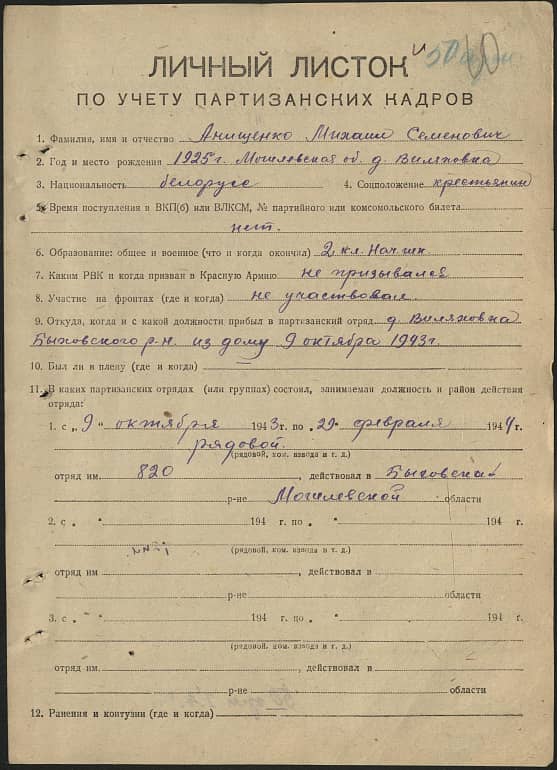 и 60
ЛИЧНЫЙ ЛИСТОК
ПО УЧЕТУ ПАРТИЗАНСКИХ КАДРОВ
1. Фамилия, имя и отчество Анищенко Михаил Семенович
2. Год и место рождения 1925г. Могилевская об. д. Виляховка
3. Национальность белорусс 4. Соцположение крестьянин
5. Время поступления в ВКП(б) или ВЛКСМ, № партийного или комсомольского билета
нет.
6. Образование: общее и военное (что и когда окончил) 2 кл. Нач. шк.
7. Каким РВК и когда призван в Красную Армию не призывался
8. Участие на фронтах (где и когда) не участвовал.
9. Откуда, когда и с какой должности прибыл в партизанский отряд д. Виляховка
Быховского р-н. из дому 9 октября 1943г.
10. Был ли в плену (где и когда)
11. В каких партизанских отрядах (или группах) состоял, занимаемая должность и район действия
отряда:
1. с „9" октября 1943г. по „29" февраля 1944г.
рядовой.
(рядовой, ком. взвода и т. д.)
отряд им. 820, действовал в Быховской
р-не Могилевской области
2. с „ " 194 г. по „ " 194 г.
(рядовой, ком. взвода и т. д.)
отряд им. , действовал в
р-не области
3. с „ " 194 г. по „ " 194 г.
(рядовой, ком. взвода и т. д.)
отряд им. , действовал в
р-не области
12. Ранения и контузии (где и когда)